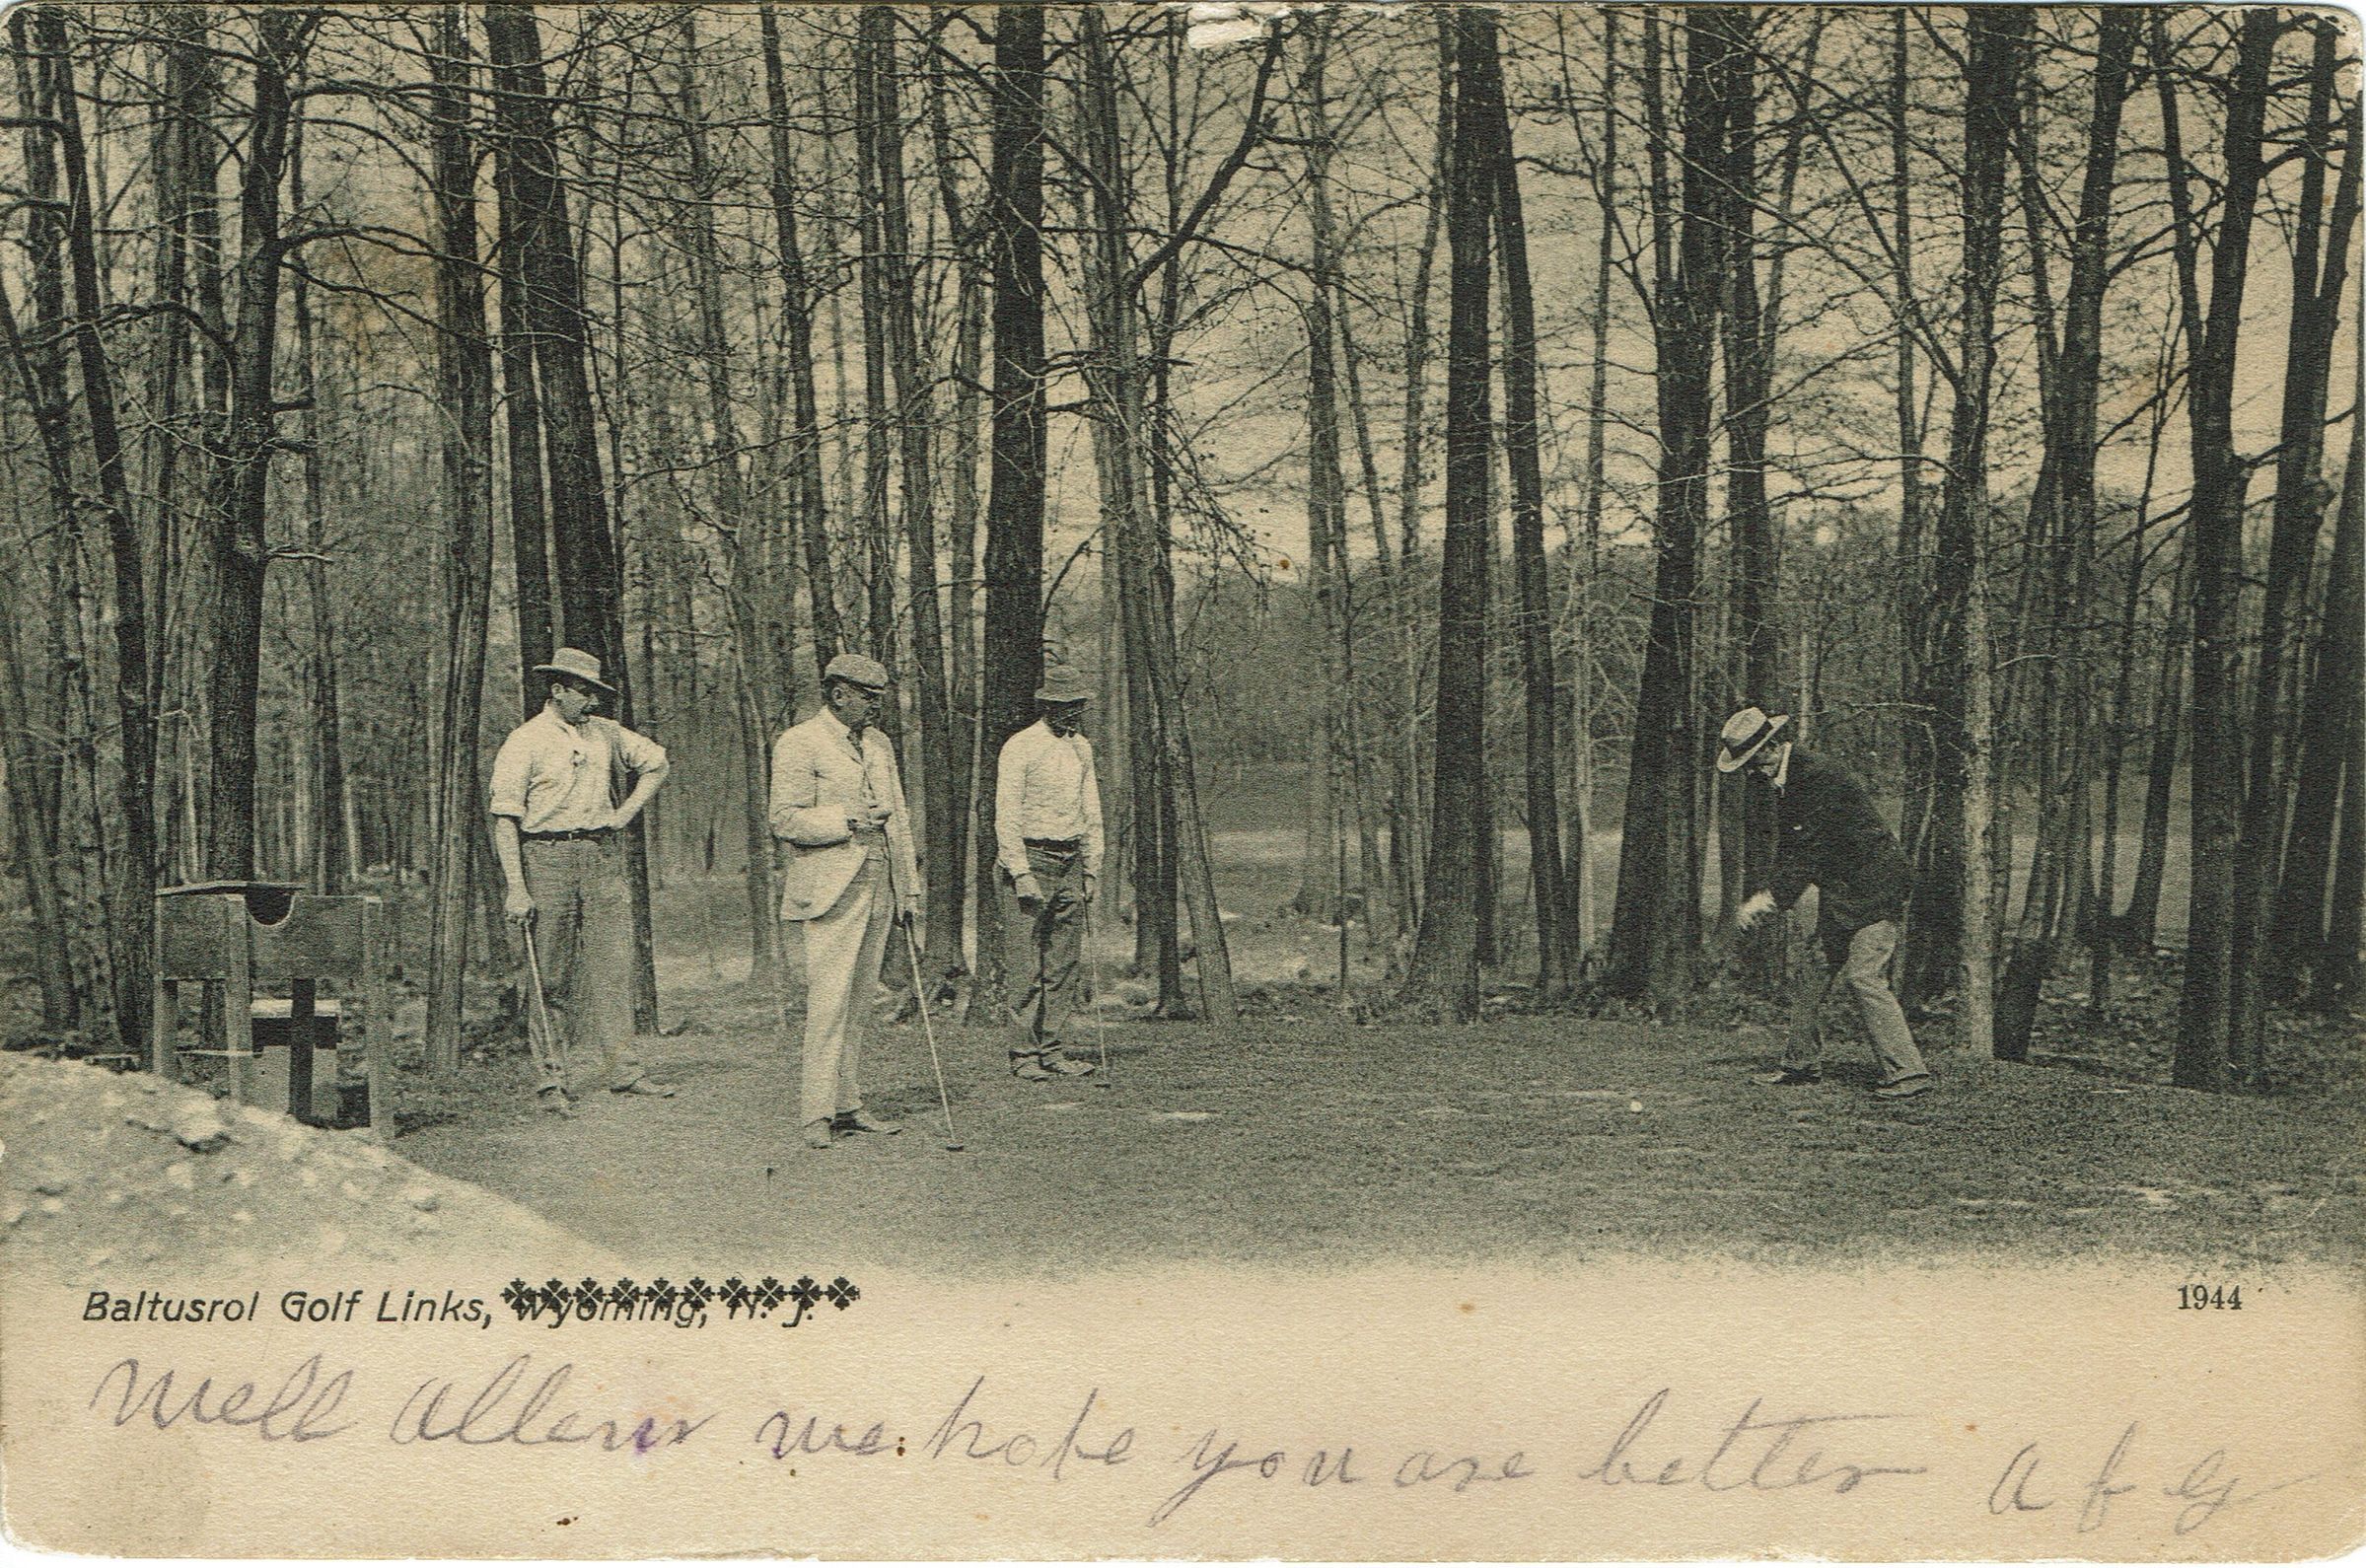 Baltusrol Golf Links, Wyoming, N. J.
1944
Well Allen we hope you are better a f g